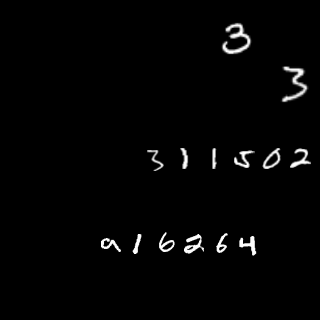 3
3
311502
a16264